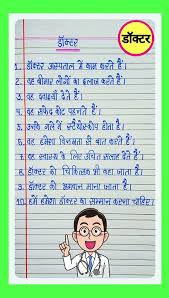 डॉक्टर
डॉक्टर
1. डॉक्टर अस्पताल में काम करते हैं।
2. वह बीमार लोगों का इलाज करते हैं।
3. वह दवाइयाँ देते हैं।
4. वह सफेद कोट पहनते हैं।
5. उनके गले में स्टैथोस्कोप होता है।
6. वह हमेशा विनम्रता से बात करते हैं।
7. वह स्वास्थ्य के लिए उचित सलाह देते हैं।
8. डॉक्टर को चिकित्सक भी कहा जाता है।
9. डॉक्टर को भगवान माना जाता है।
10. हमें हमेशा डॉक्टर का सम्मान करना चाहिए।